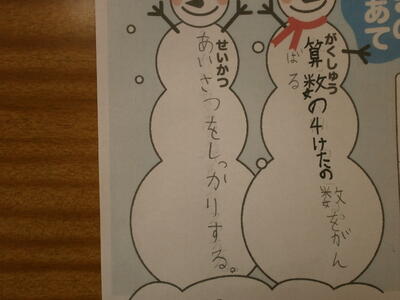 あて
がくしゅう
算数の4けたの数をがん
ばる
せいかつ
あいさつをしっかりする。